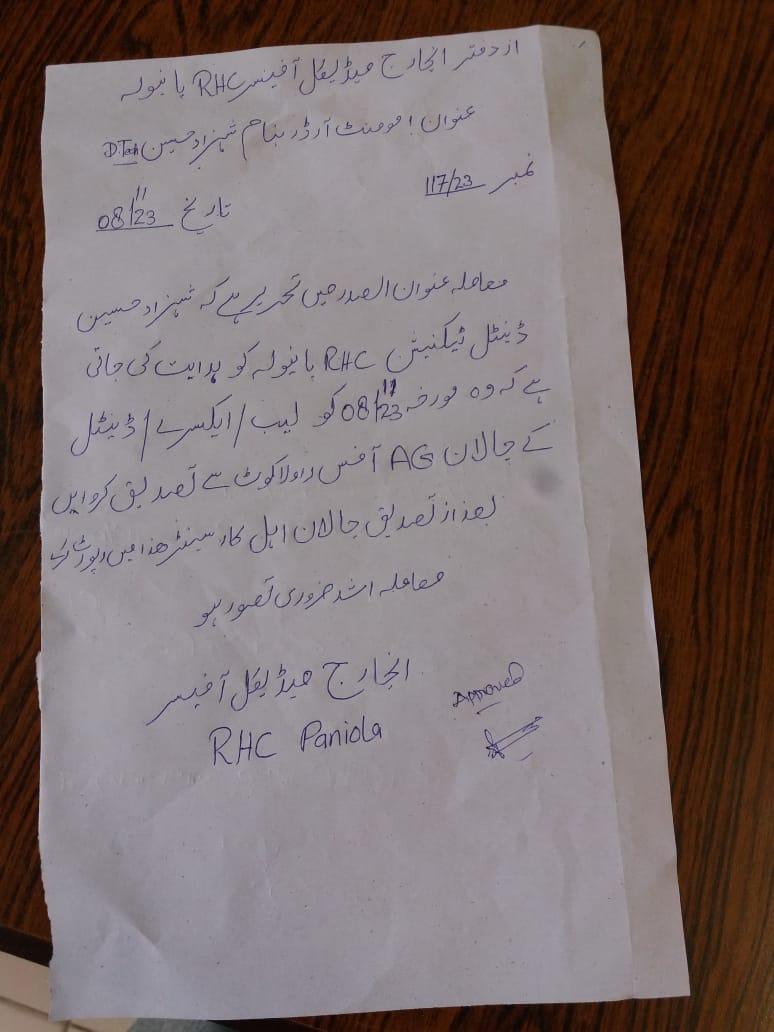 از دفتر انچارج میڈیکل آفیسر RHC پانیولہ
عنوان! موومنٹ آرڈر بنام شہزاد حسین D.Tech
نمبر 117/23
تاریخ 08/11/23
معاملہ عنوان الصدر میں تحریر ہے کہ شہزاد حسین
ڈینٹل ٹیکنیشن RHC پانیولہ کو ہدایت کی جاتی
ہے کہ وہ مورخہ 08/11/23 کو لیب/ایکسرے/ڈینٹل
کے چالان AG آفس راولاکوٹ سے تصدیق کروایں
بعد از تصدیق چالان اہل کار سینٹر ھذا میں رپورٹ کرے
معاملہ اشد ضروری تصور ہو
انچارج میڈیکل آفیسر
RHC Paniola
Approved